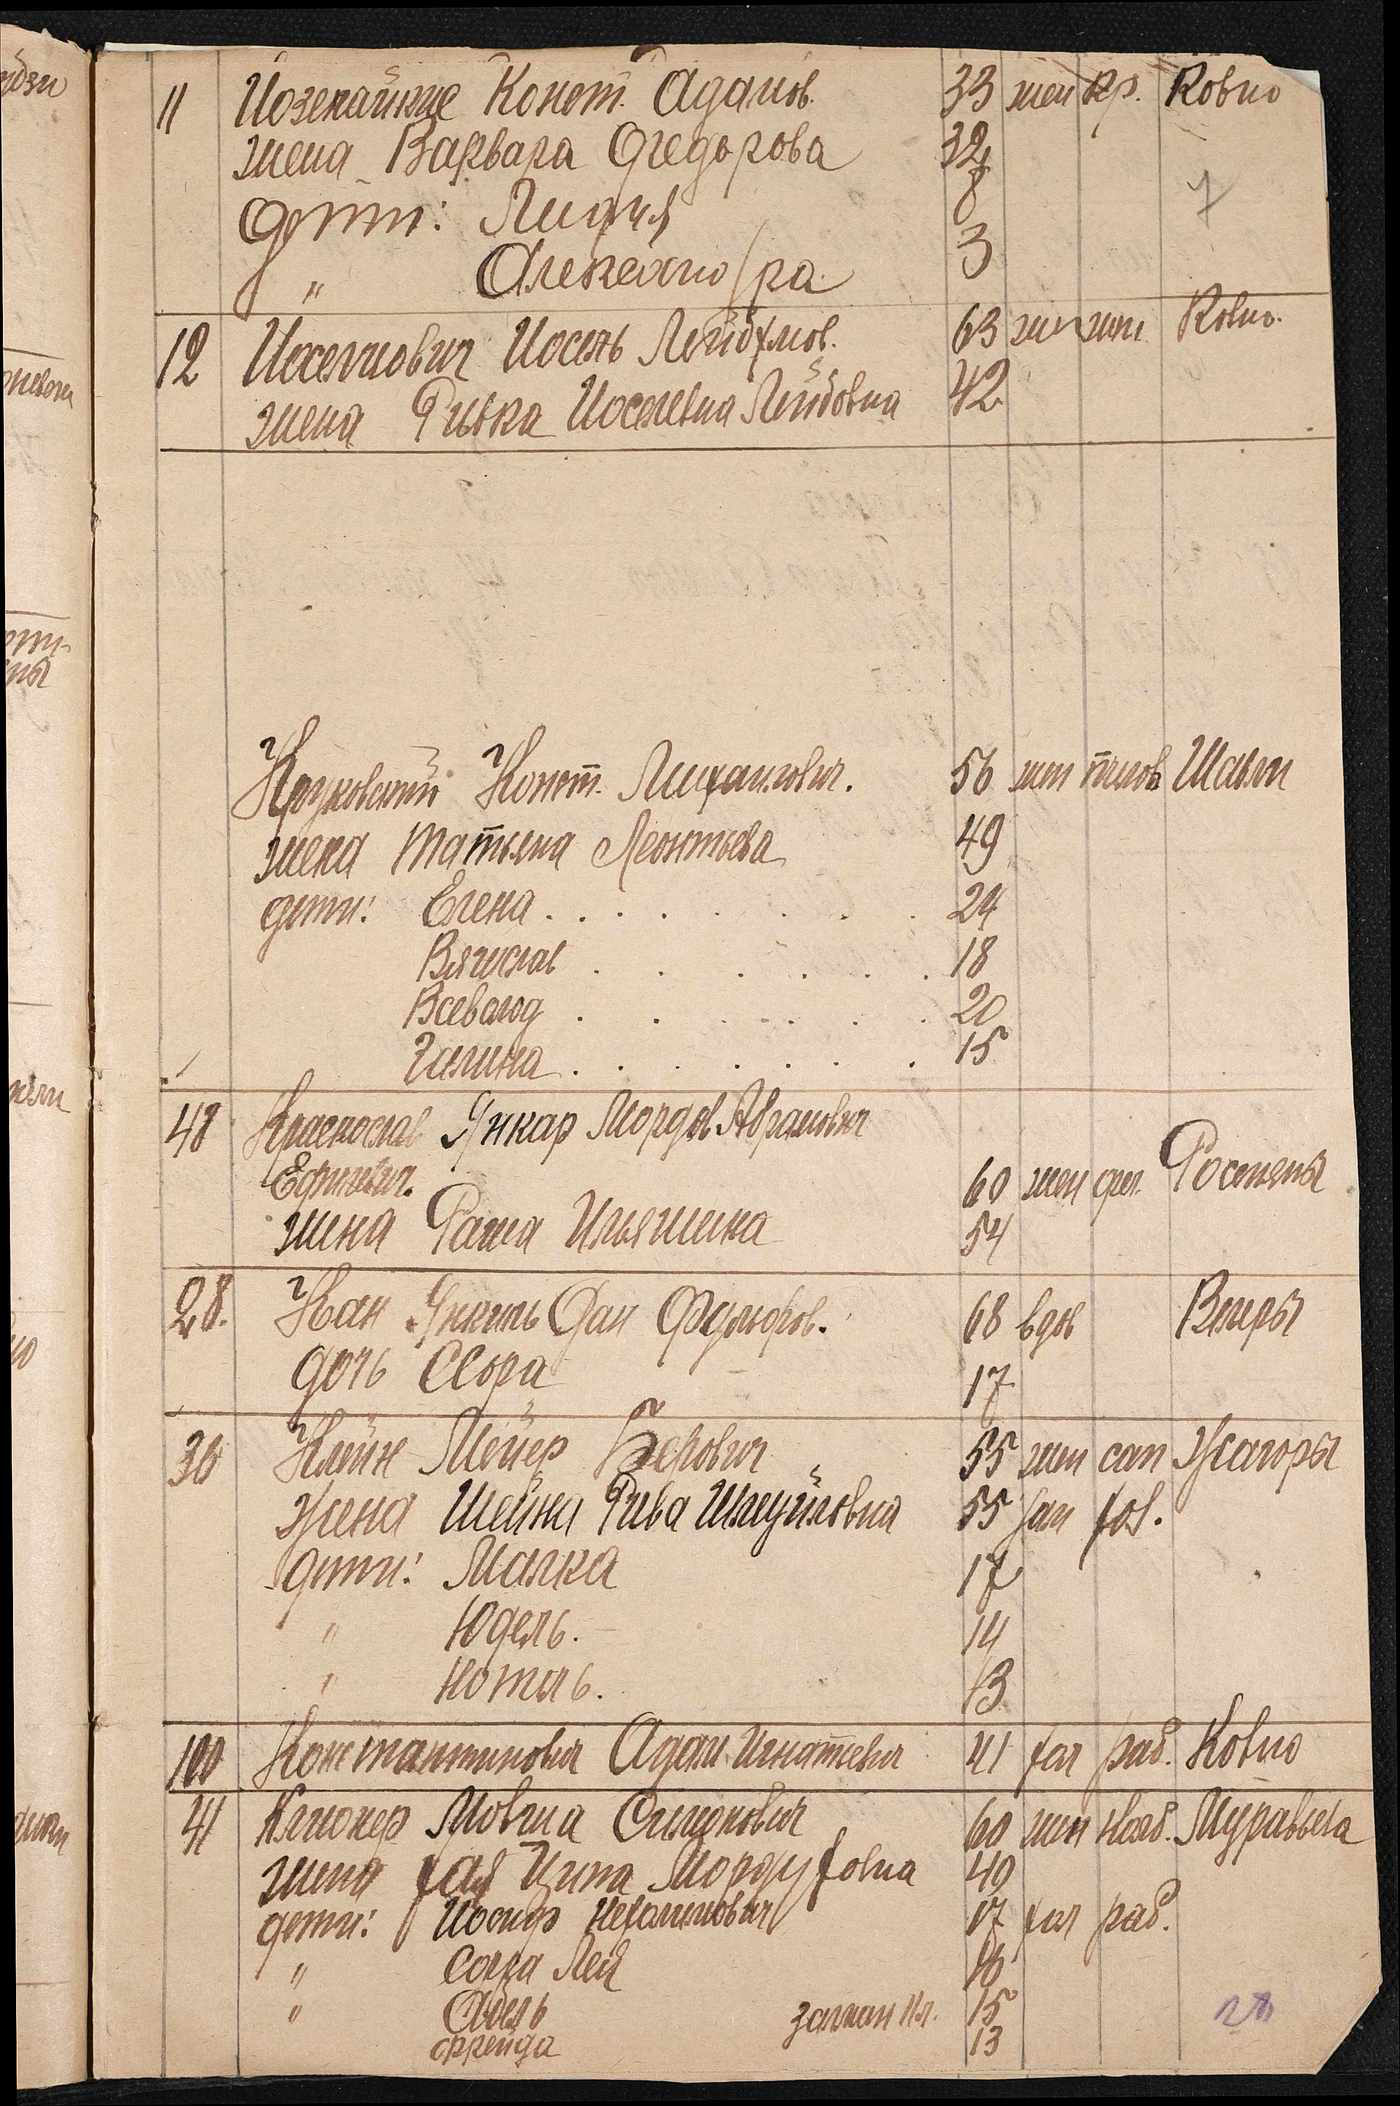 11 Иозекайтис Конст. Адамов. 33 жен кр. Ковно
жена Варвара Федорова 32
дети: Лидия 8
" Александра 3
7
12 Иоселиович Иосель Лейбумов. 63 жен мещ Ковно.
жена Ривка Иоселевна Лейбовна 42
Круковский Конст. Михайлович. 56 жен чинов Шавли
жена Татьяна Леонтьева 49
дети: Елена 24
Вячеслав 18
Всеволод 20
Галина 15
48 Краснослав Янкар Мордов Абрамович
Ефимович. 60 жен Россиены
жена Раша Ильяшина 54
28. Кан Янкель Дан 68 вдов Вилеры
дочь Ссора 17
30 Клейн Мейер Берович 55 жен сап Жагоры
жена Шейна Рива Шмуйловна 55
дети: Малка 17
" Юдель. 14
"Ноталь. 13
100 Константинович Адам Игнатьевич 41 хол раб. Ковно
41 Клионер Мовша Симонович 60 жен Муравьева
жена Хая Ципа Мордуховна 49
дети: Иосиф Нехамиович 17 хол раб.
" Соша Лея 16
" Абель 15
Фрейда 13